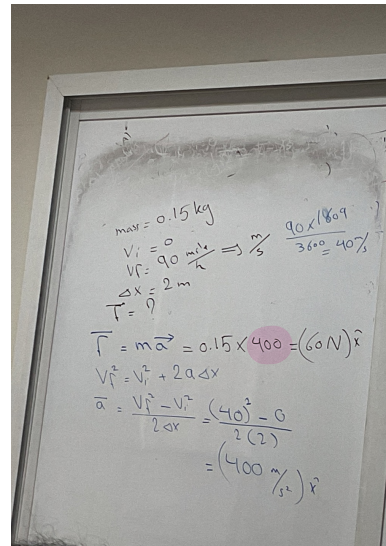 mass = 0.15 kg
Vi = 0
Vf = 90 mile/h ⇒ m/s
90 x 1609 / 3600 = 40 m/s
Δx = 2 m
F = ?
F = ma = 0.15 x 400 = (60 N) x̂
Vf² = Vi² + 2aΔx
a = Vf² - Vi² / 2Δx = (40)² - 0 / 2(2)
= (400 m/s²) x̂